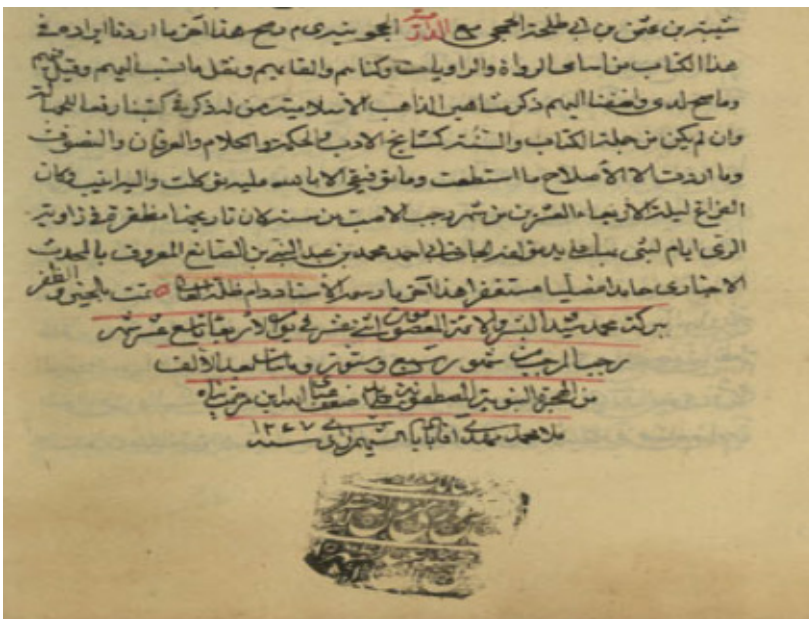 شيبة بن عثمن بن ابي طلحة الحجبي مع الجحو م وصح هذا آخر ما اردنا ايراده في
هذا الكتاب من اسامي الرواة والراويات وكناهم والقابهم ونقل ما نسب اليهم وقيل فيهم
وما صح لدي واضفنا اليهم ذكر مشاهير المذاهب الاسلامية من لم يذكر في كتبنا رفعا للجهالة
وان لم يكن من حملة الكتاب والسنة كمشايخ الادب والحكمة والكلام والعرفان والتصوف
وما اردت الا الاصلاح ما استطعت وما توفيقي الا بالله عليه توكلت واليه انيب وكان
الفراغ ليلة الاربعاء العشرين من شهر رجب الاصب من سنة كان تاريخها مظفرة في زاوية
الري ايام لبثي بها على يد مؤلفه الجاني ابي احمد محمد بن عبد النبي بن الصانع المعروف بالمحدث
الاخباري حامدا مصليا مستغفرا هذا آخر ما رسمه الاستاد دام ظله تمت بالخير والظفر
ببركة محمد سيد البشر والائمة المعصومين اثني عشر في يوم الاربعا تاسع عشر شهر
رجب المرجب من شهور سبع وستون ومأتان بعد الالف
من الهجرة النبوية المصطفوية على يد اضعف عباد الله ابن مرحمت پناه
ملا محمد مهدي آقا بابا الشهميرزادي سنه ١٢٦٧